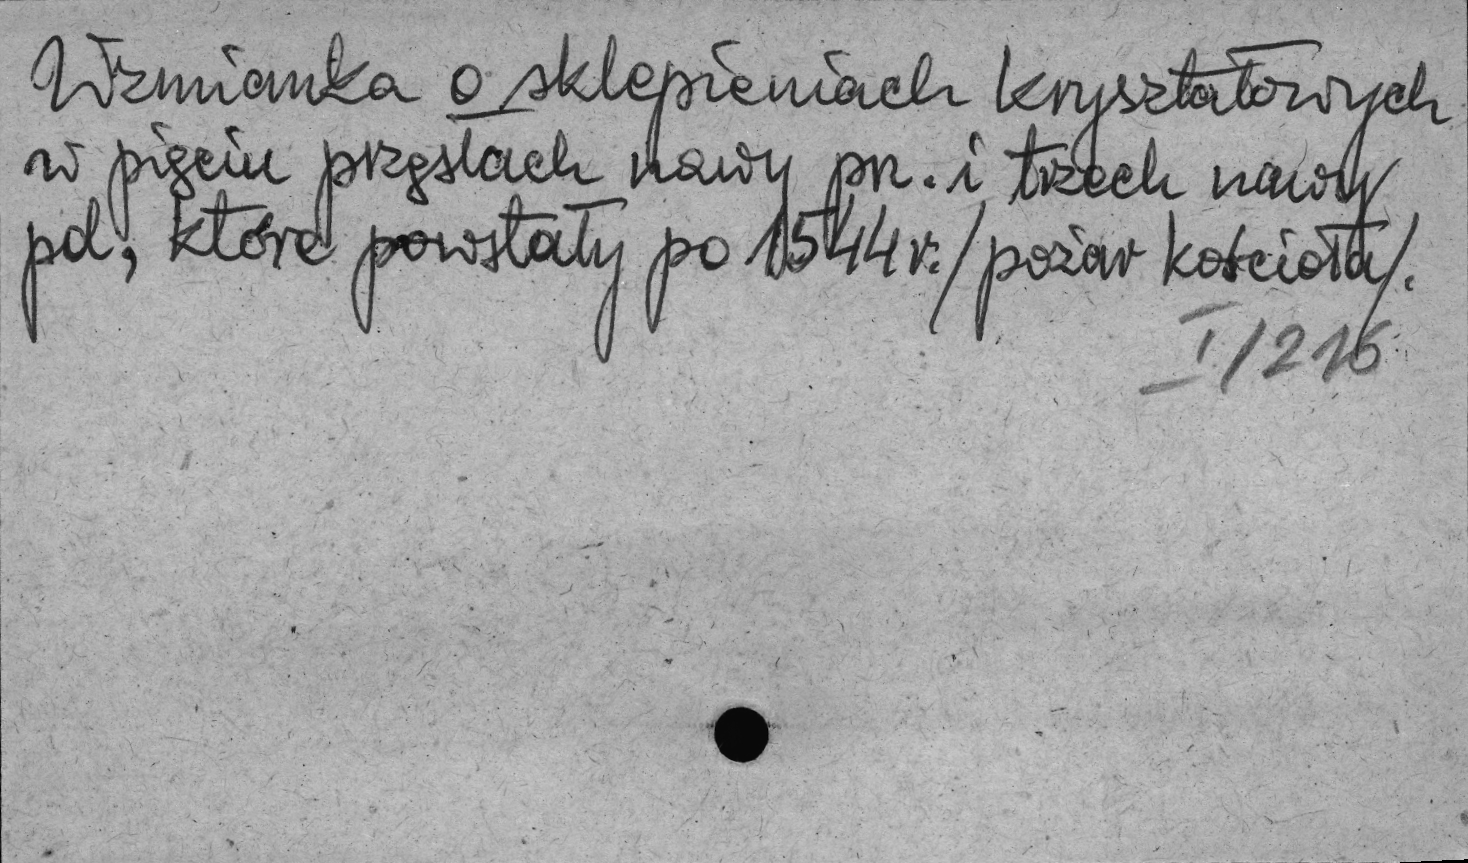 Wzmianka o sklepieniach kryształowych
w pięciu przęsłach nawy pn. i trzech nawy
pd, które powstały po 1544 r. /pożar kościoła/.
I/216